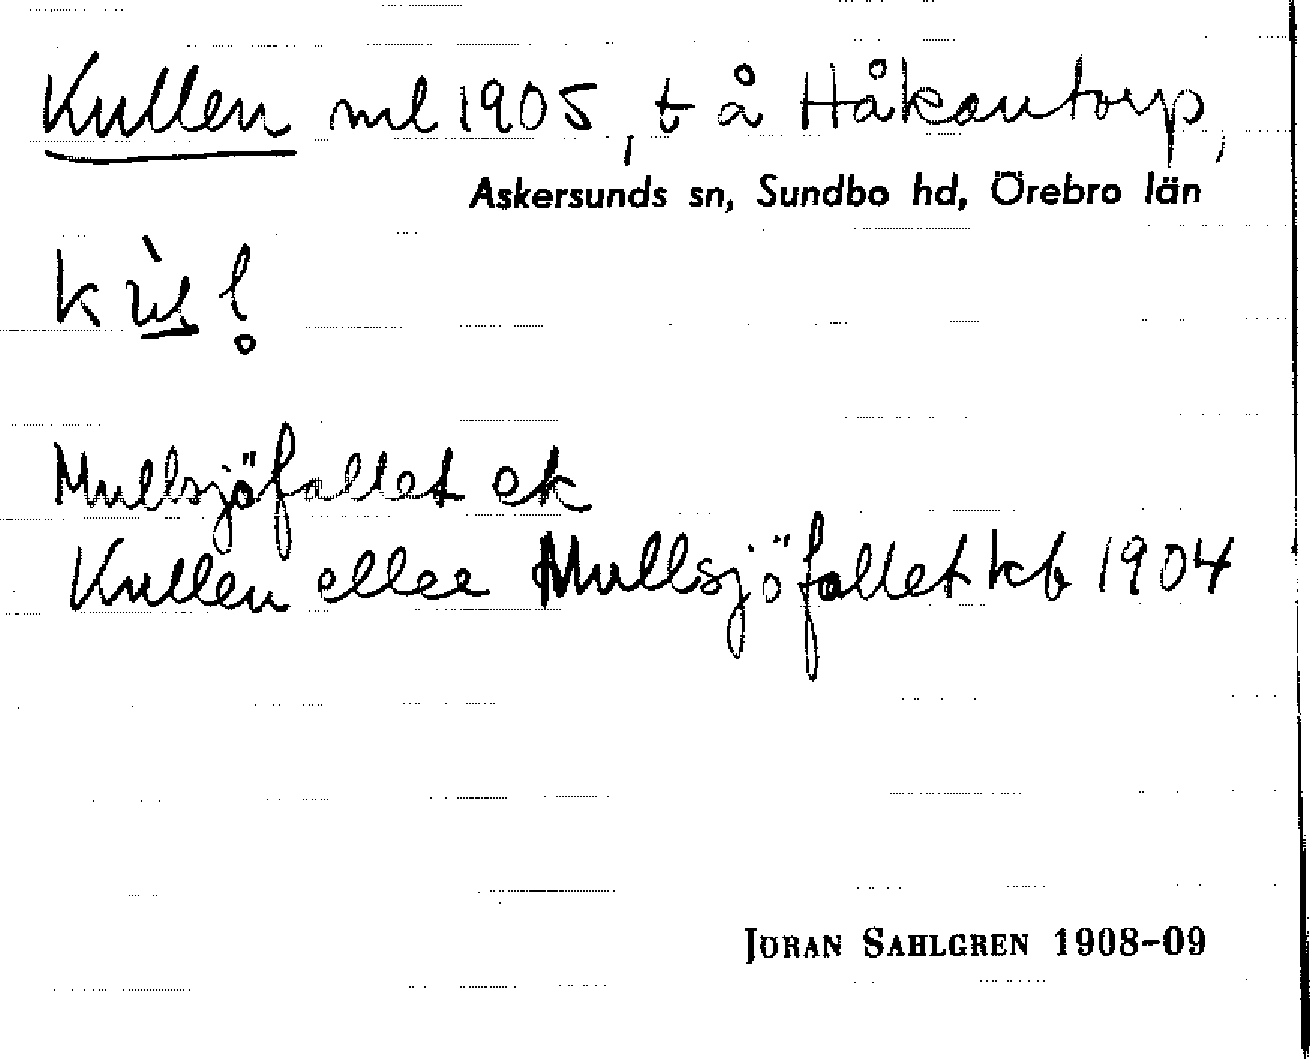 Kullen ml 1905, t å Håkantorp,
Askersunds sn, Sundbo hd, Örebro län
Mullsjöfallet ek
Kullen eller Mullsjöfallet kb 1904
JÖRAN SAHLGREN 1908-09